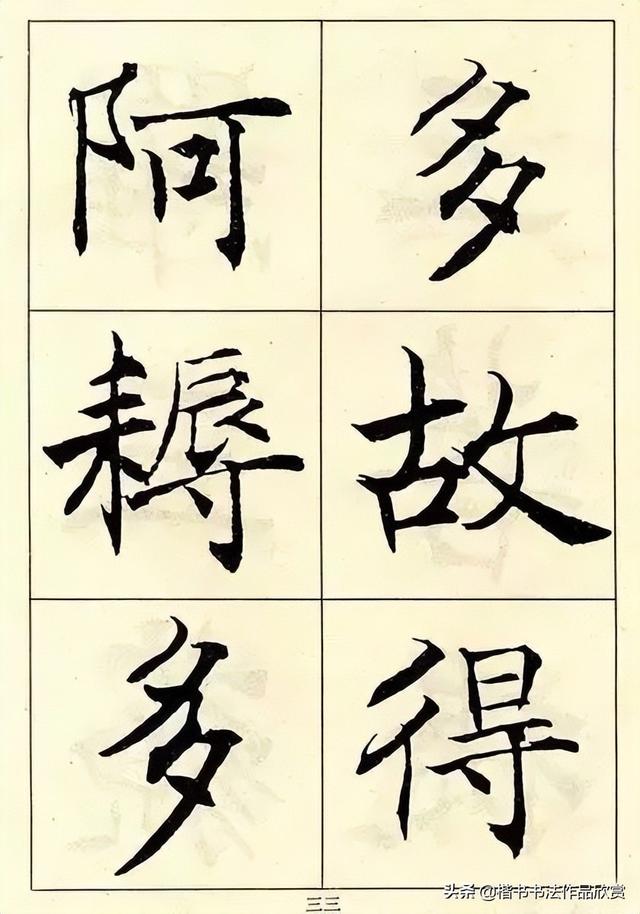 多故得
阿耨多
三三
头条 @楷书书法作品欣赏